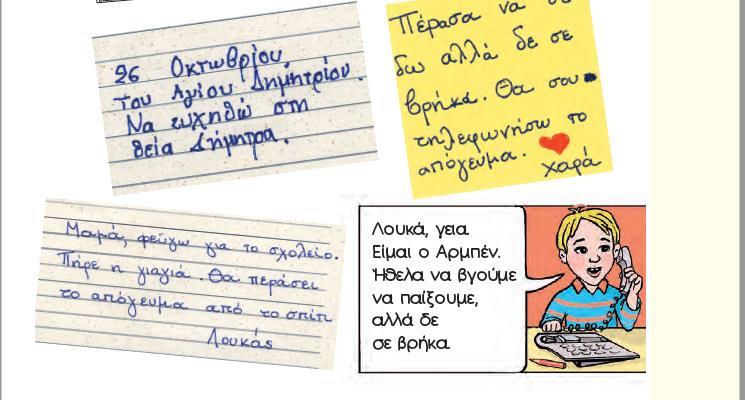 26 Οκτωβρίου,
του Αγίου Δημητρίου.
Να ευχηθώ στη
θεία Δήμητρα.
Πέρασα να σε
δω αλλά δε σε
βρήκα. Θα σου
τηλεφωνήσω το
απόγευμα.
Χαρά
Μαμά, φεύγω για το σχολείο.
Πήρε η γιαγιά. Θα περάσει
το απόγευμα από το σπίτι
Λουκάς
Λουκά, γεια
Είμαι ο Αρμπέν.
Ήθελα να βγούμε
να παίξουμε,
αλλά δε
σε βρήκα